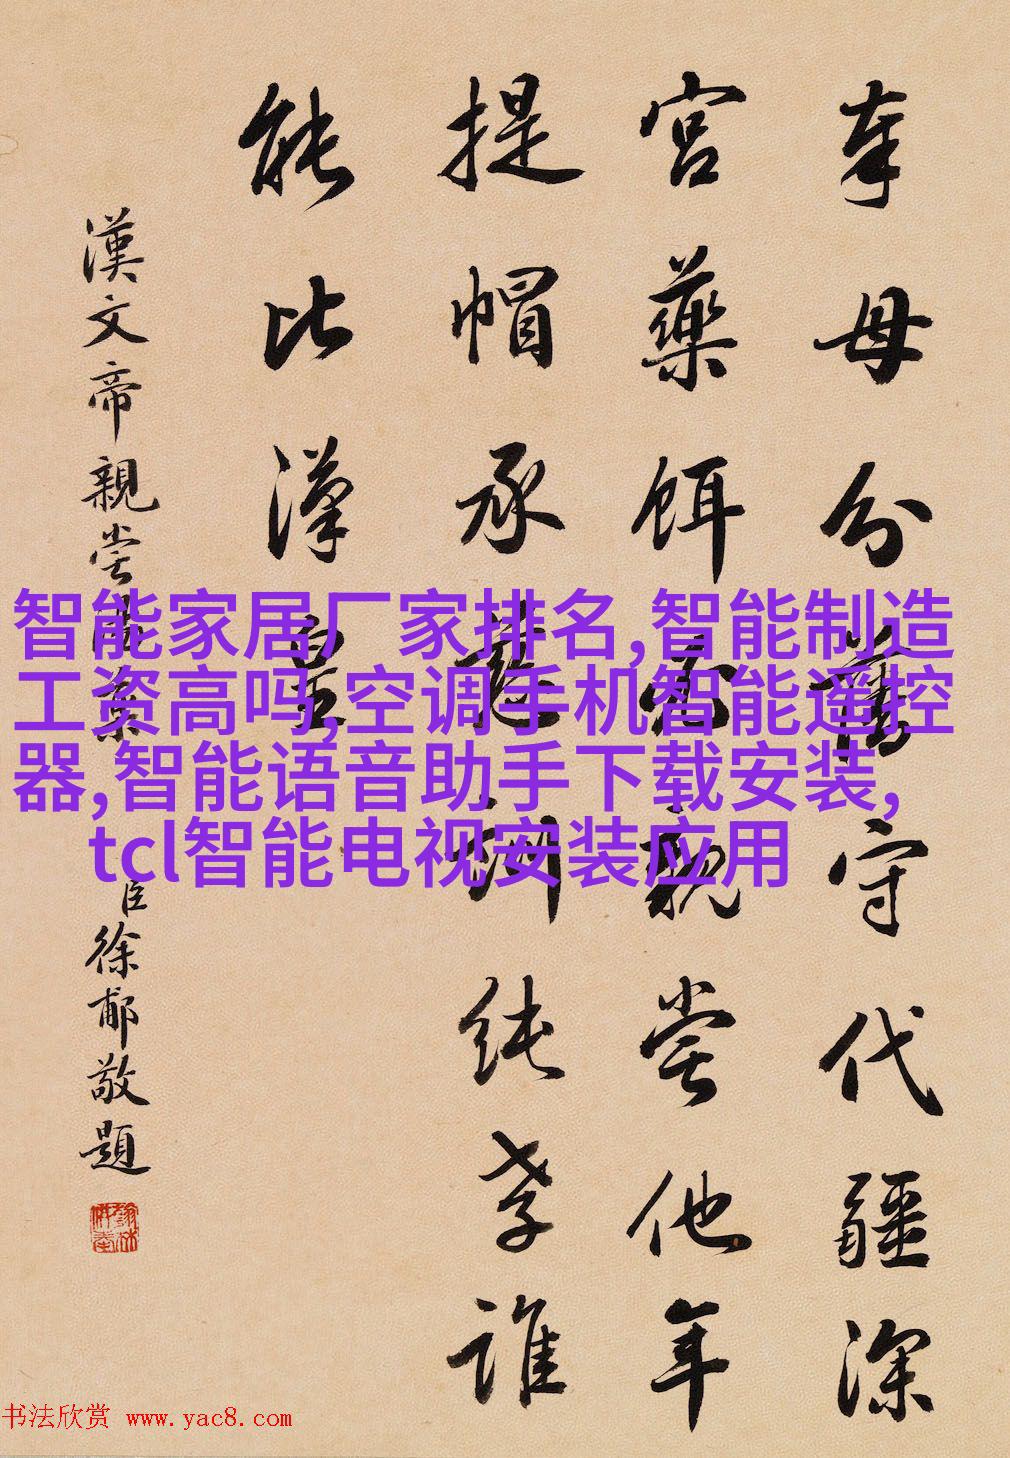 奉母分藩守代疆深
宮藥餌必親嘗他年
提帽承慈訓純孝誰
能比漢皇
漢文帝親嘗湯藥
臣徐郙敬題
智能家居厂家排名,智能制造
工资高吗,空调手机智能遥控
器,智能语音助手下载安装,
tcl智能电视安装应用
书法欣赏 www.yac8.com